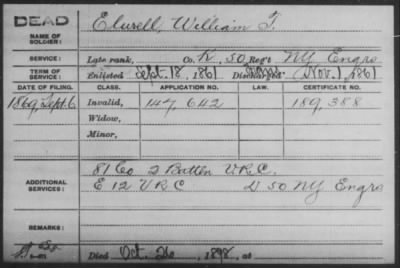 DEAD
NAME OF SOLDIER: Elwell, William T.
SERVICE: Late rank, Co. K, 50 Reg't NY Engrs
TERM OF SERVICE: Enlisted Sept. 18, 1861 Discharged Nov. 1, 1861
DATE OF FILING. CLASS. APPLICATION NO. LAW. CERTIFICATE NO.
1869, Sept. 6 Invalid, 147,642 189,388
Widow,
Minor,
81 Co 2 Batten V.R.C.
ADDITIONAL SERVICES: E 12 V R C D 50 NY Engrs
REMARKS:
Died Oct. 20, 1898, at